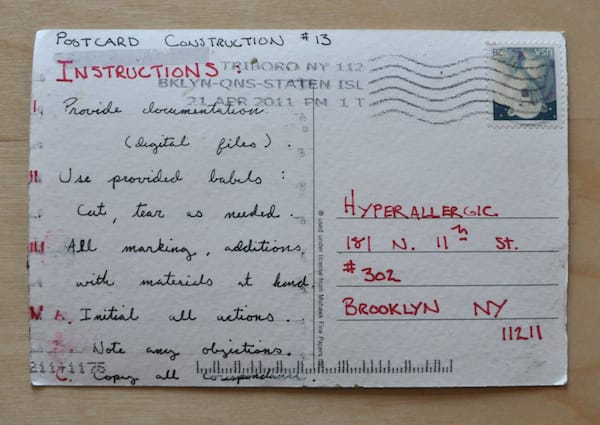 POSTCARD CONSTRUCTION #13
INSTRUCTIONS:
TRIBORO NY 112
BKLYN-QNS-STATEN ISL
21 APR 2011 PM 1 T
USA 28
I. Provide documentation
(digital files).
II. Use provided babels:
Cut, tear as needed.
III. All marking, additions,
with materials at hand.
IV. A. Initial all actions.
Note any objections.
C. Copy all correspondence.
21141175
® used under license from Mohawk Fine Papers
HYPERALLERGIC
181 N. 11th St.
#302
BROOKLYN NY
11211